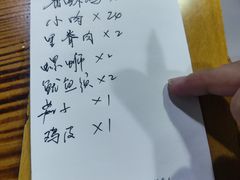 小肉×20
里脊肉×2
螺蛳×2
鱿鱼须×2
茄子×1
鸡皮×1